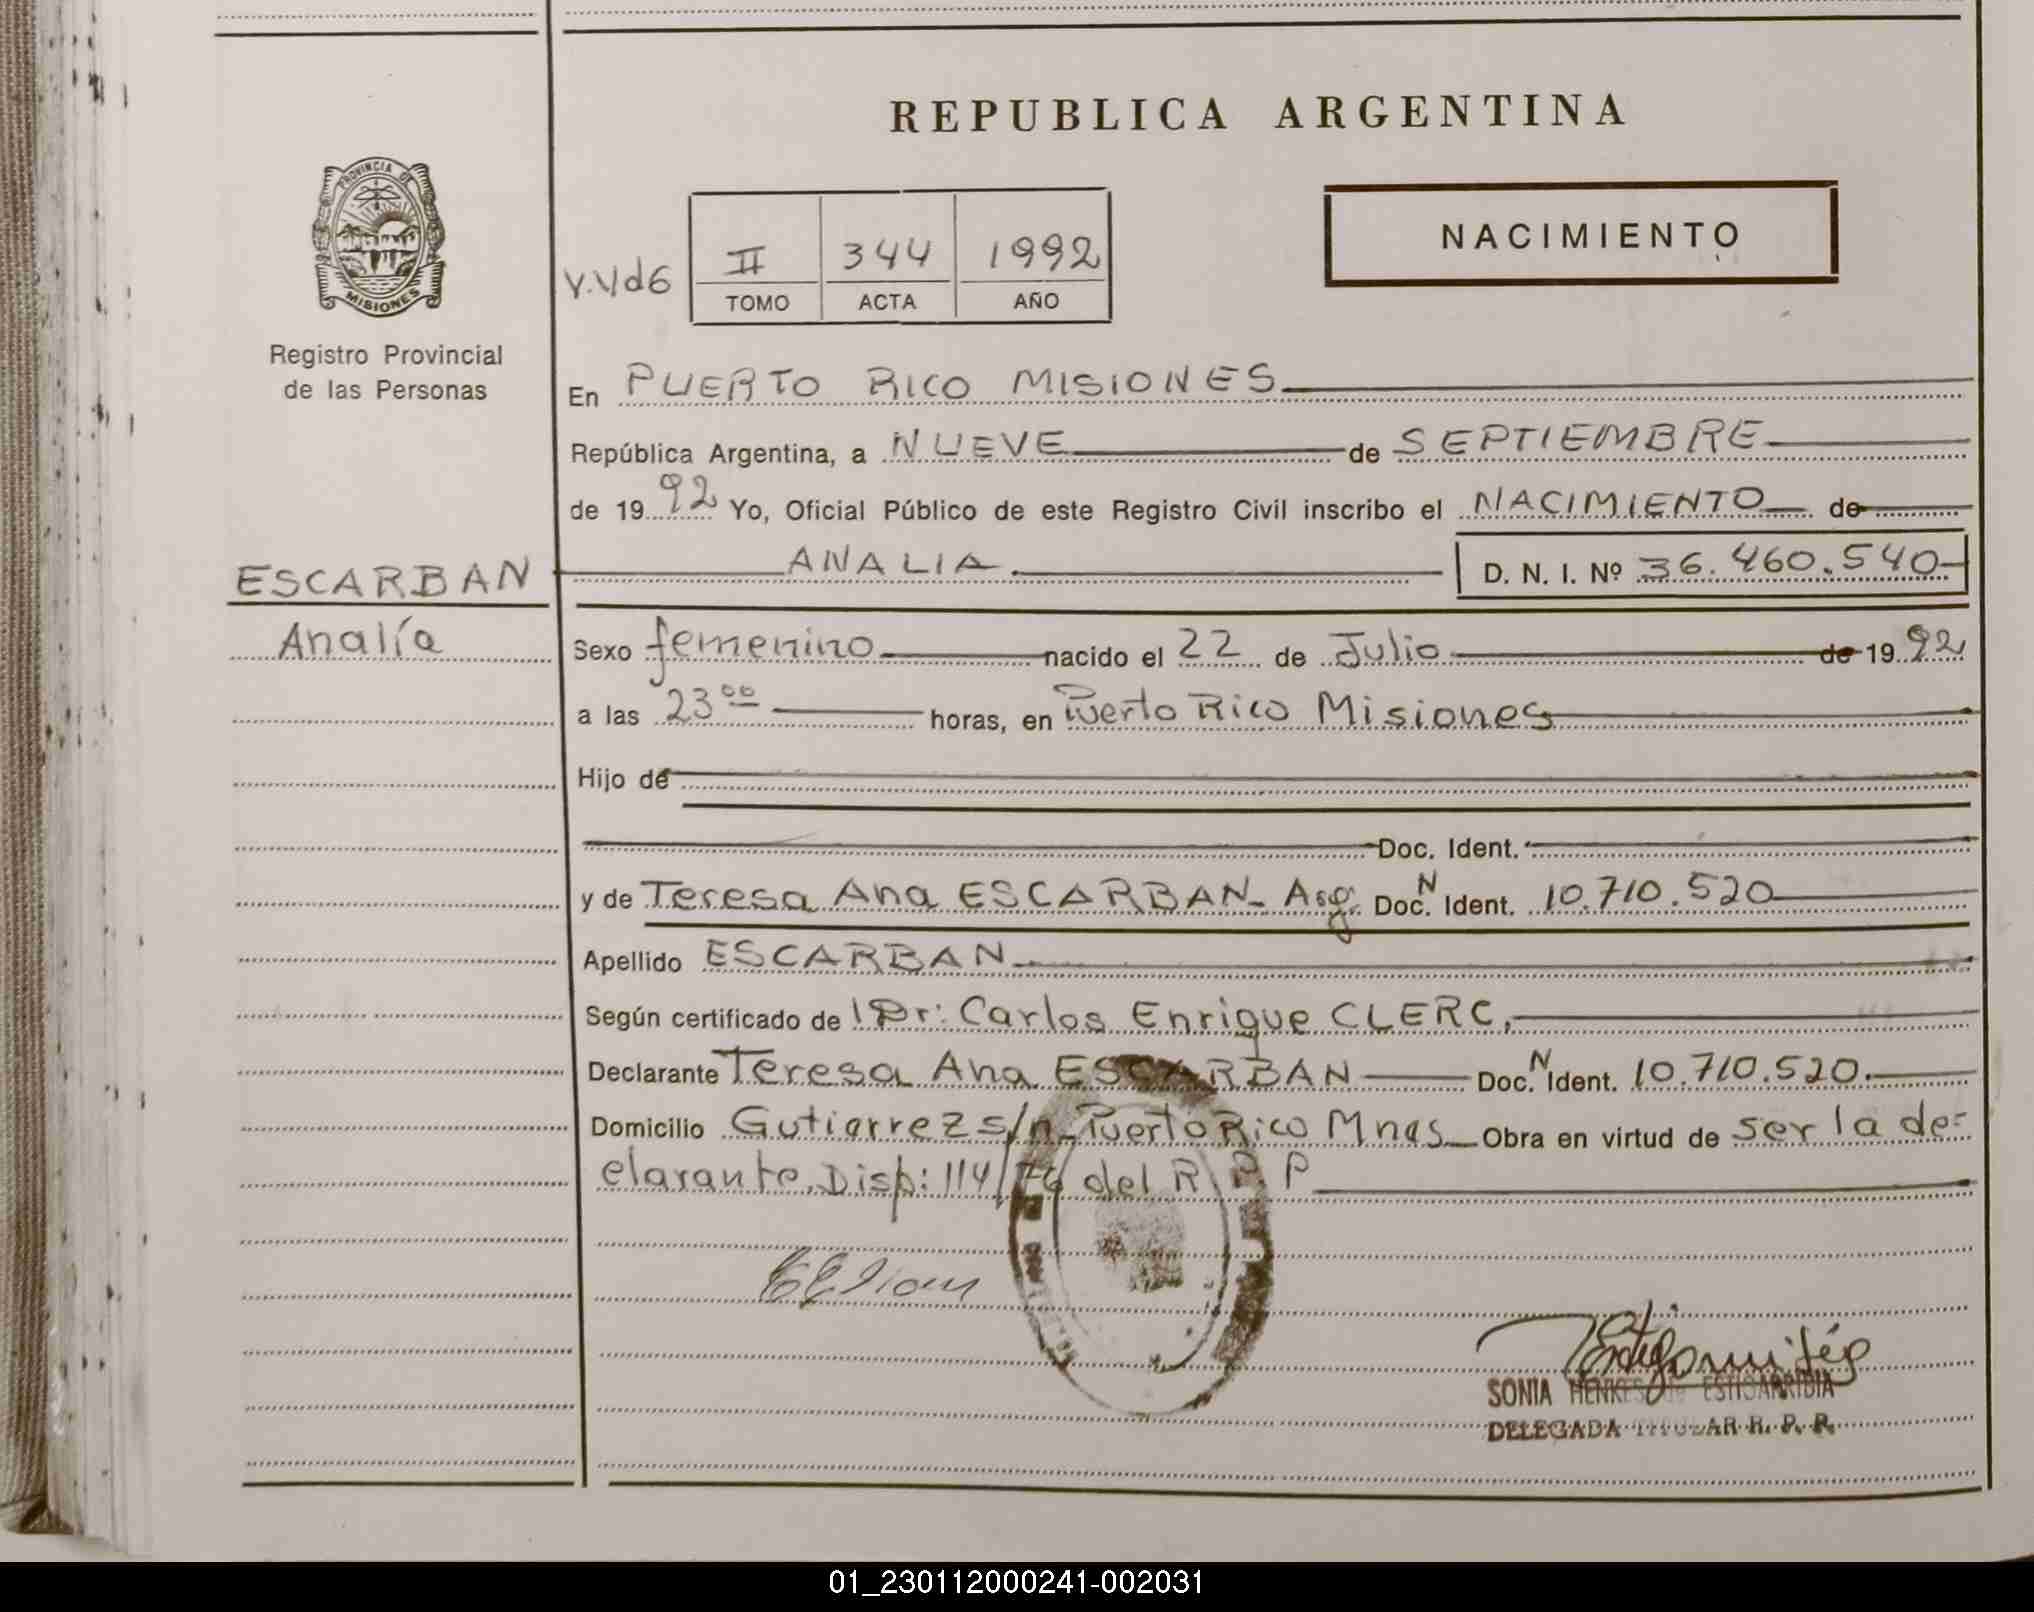 REPUBLICA ARGENTINA
PROVINCIA DE
MISIONES
Registro Provincial
de las Personas
NACIMIENTO
II 344 1992
TOMO ACTA AÑO
En PUERTO RICO MISIONES
República Argentina, a NUEVE de SEPTIEMBRE
de 1992 Yo, Oficial Público de este Registro Civil inscribo el NACIMIENTO de
ANALIA D. N. I. Nº 36.460.540
ESCARBAN
Analía
Sexo femenino nacido el 22 de Julio de 1992
a las 23 00 horas, en Puerto Rico Misiones
Hijo de
Doc. Ident.
y de Teresa Ana ESCARBAN- Arg. Doc. N Ident. 10.710.520
Apellido ESCARBAN
Según certificado de Dr: Carlos Enrique CLERC,
Declarante Teresa Ana ESCARBAN Doc. N Ident. 10.710.520.
Domicilio Gutierrez s/n- Puerto Rico Mnes Obra en virtud de ser la de-
clarante. Disp: 114/76 del R. P. P
SONIA HENKES DE ESTIGARRIBIA
DELEGADA TITULAR R. P. P.
01_230112000241-002031